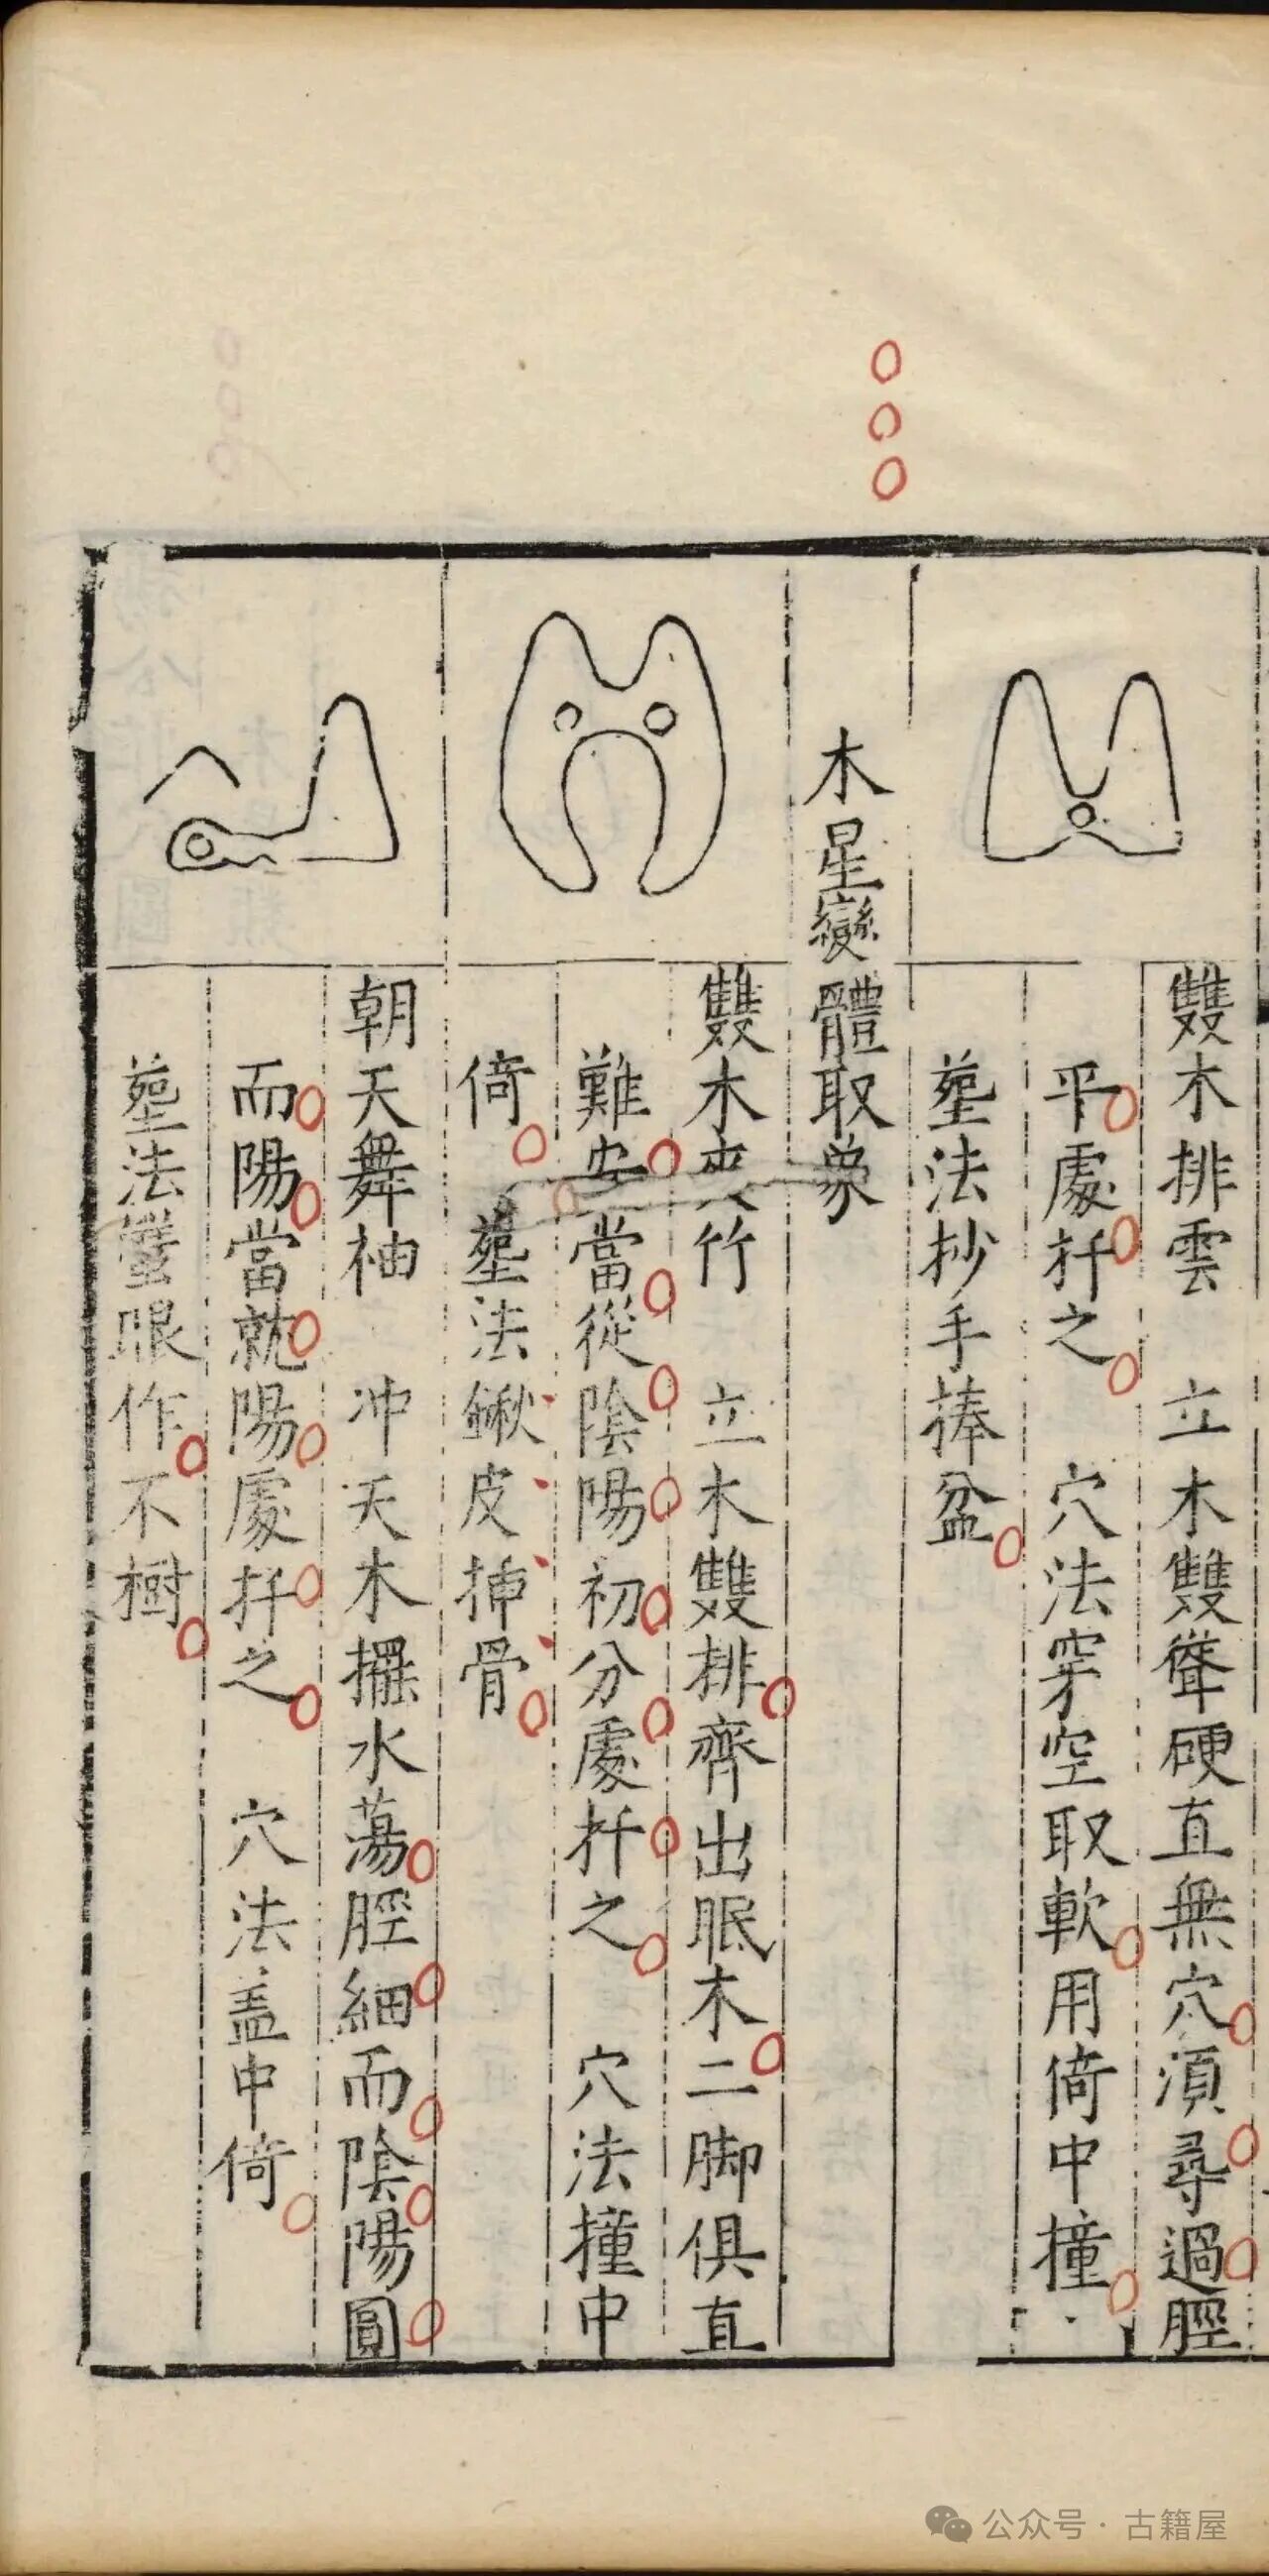 雙木排雲　立木雙聳硬直無穴須尋過脛
平處扦之　穴法穿空取軟用倚中撞
塟法抄手捧盆
木星變體取象
雙木夾竹　立木雙排齊出眠木二脚俱直
難安當從陰陽初分處扦之　穴法撞中
倚　塟法鍬皮揷骨
朝天舞袖　冲天木擺水蕩脛細而陰陽圓
而陽當就陽處扦之　穴法盖中倚
塟法蟹眼作不樹
公众号·古籍屋